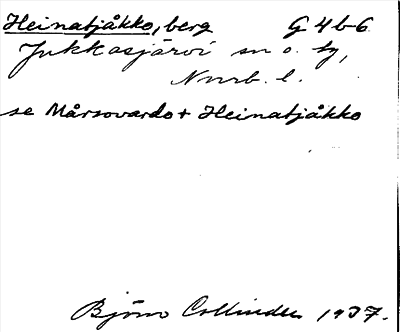 Heinatjåkko, berg G 4 b-6
Jukkasjärvi sn o. tg,
Nnrb. l.
se Mårsovardo + Heinatjåkko
Björn Collinder 1937.